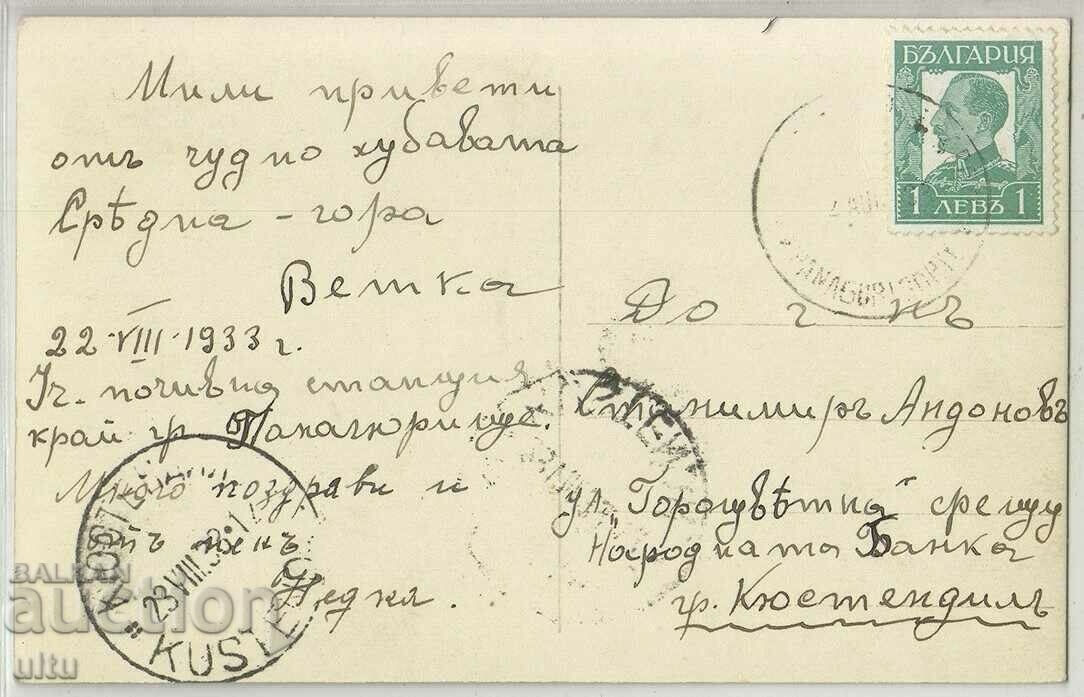 Мили привети
отъ чудно хубавата
Срѣдна - гора
Ветка
22·VIII·1933 г.
Уч. почивна станция
край гр. Панагюрище.
Много поздрави и
отъ менъ
Недка.
БЪЛГАРИЯ
1 ЛЕВЪ 1
До г-нъ
Станимиръ Андоновъ
ул. "Гороцвѣтна" срещу
Народната Банка
гр. Кюстендилъ
23 VIII 33·17
KUSTE
BALKAN
auction
ultu